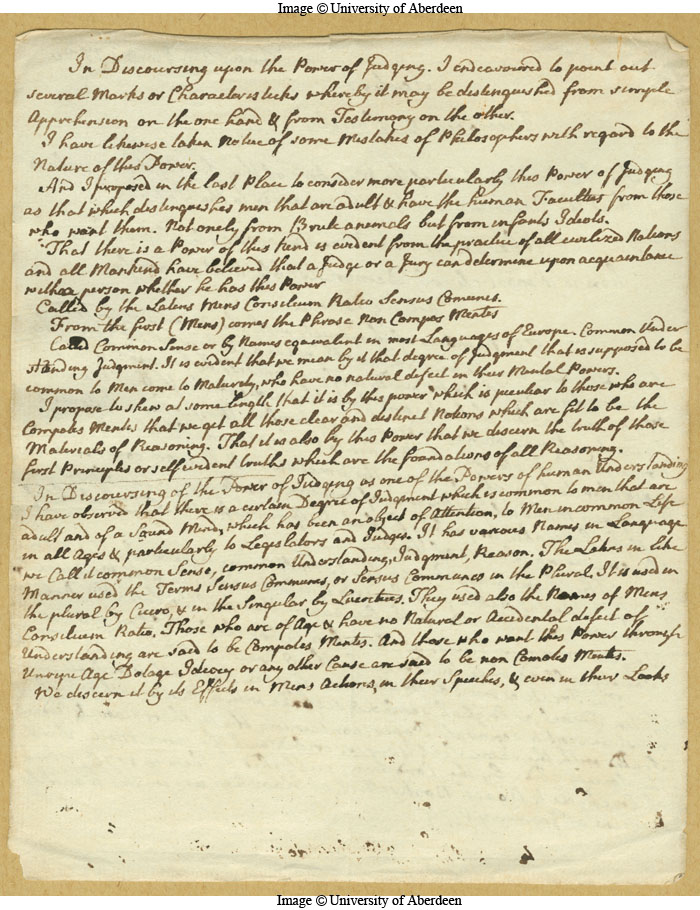 Image © University of Aberdeen
In Discoursing upon the Power of Judging. I endeavoured to point out
several Marks or Characteristicks whereby it may be distinguished from simple
Apprehension on the one hand & from Testimony on the other.
I have likewise taken Notice of some Mistakes of Philosophers with regard to the
Nature of this Power.
And I proposed in the last Place to consider more particularly this Power of Judging
as that which distinguishes men that are adult & have the human Faculties from those
who want them. Not onely from Brute animals but from infants Ideots.
That there is a Power of this kind is evident from the practice of all civilized Nations
and all Mankind have believed that a Judge or a Jury can determine upon acquaintance
with a person whether he has this Power
Called by the Latins Mens Consilium Ratio Sensus Comunis.
From the first (Mens) comes the Phrase Non Compos Mentis
Called Common Sense or by Names equivalent in most Languages of Europe. Common Under
standing Judgment. It is evident that we mean by it that degree of Judgment that is supposed to be
common to Men come to Maturity, who have no natural defect in their Mental Powers.
I propose to shew at some length that it is by this power which is peculiar to those who are
Compotes Mentis that we get all those clear and distinct Notions which are fit to be the
Materials of Reasoning. That it is also by this Power that we discern the truth of those
first Principles or self evident truths which are the foundations of all Reasoning.
In Discoursing of the Power of Judging as one of the Powers of human Understanding
I have observed that there is a certain Degree of Judgment which is common to men that are
adult and of a Sound Mind, which has been an object of Attention, to Men in common Life
in all Ages & particularly to Legislators and Judges. It has various Names in Language
we Call it common Sense, common Understanding, Judgment, Reason. The Latins in like
Manner used the Terms Sensus Communis, or Sensus Communes in the Plural. It is used in
the plural by Cicero, & in the Singular by Lucretius. They used also the Names of Mens
Consilium Ratio. Those who are of Age & have no Natural or Accidental defect of
Understanding are said to be Compotes Mentis. And those who want this Power through
Unripe Age Dotage Ideocy or any other Cause are said to be non Compotes Mentis.
We discern it by its Effects in Mens Actions, in their Speeches, & even in their Looks
Image © University of Aberdeen